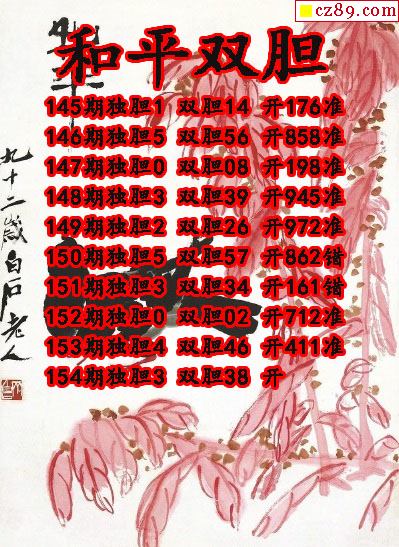 cz89.com
和平双胆
145期独胆1 双胆14 开176准
146期独胆5 双胆56 开858准
147期独胆0 双胆08 开198准
148期独胆3 双胆39 开945准
149期独胆2 双胆26 开972准
150期独胆5 双胆57 开862错
151期独胆3 双胆34 开161错
152期独胆0 双胆02 开712准
153期独胆4 双胆46 开411准
154期独胆3 双胆38 开
和平
九十二岁白石老人